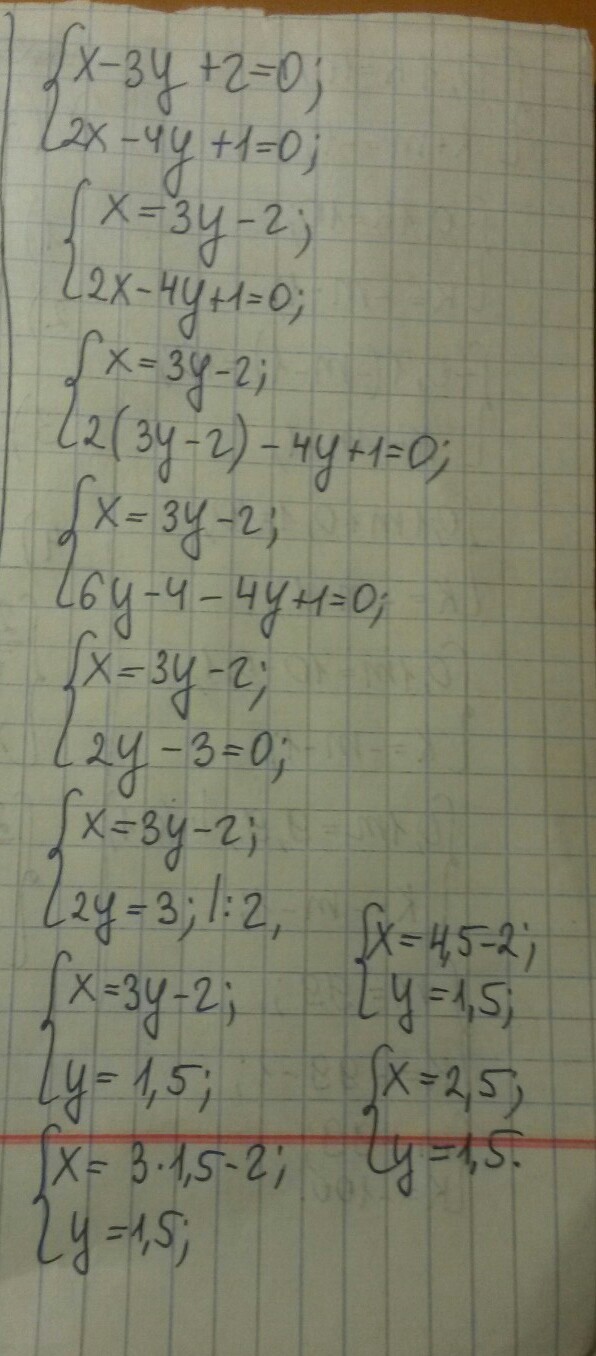 x-3y+2=0;
2x-4y+1=0;
x=3y-2;
2x-4y+1=0;
x=3y-2;
2(3y-2)-4y+1=0;
x=3y-2;
6y-4-4y+1=0;
x=3y-2;
2y-3=0;
x=3y-2;
2y=3; |:2,
x=3y-2;
y=1,5;
x=3·1,5-2;
y=1,5;
x=4,5-2;
y=1,5;
x=2,5;
y=1,5.